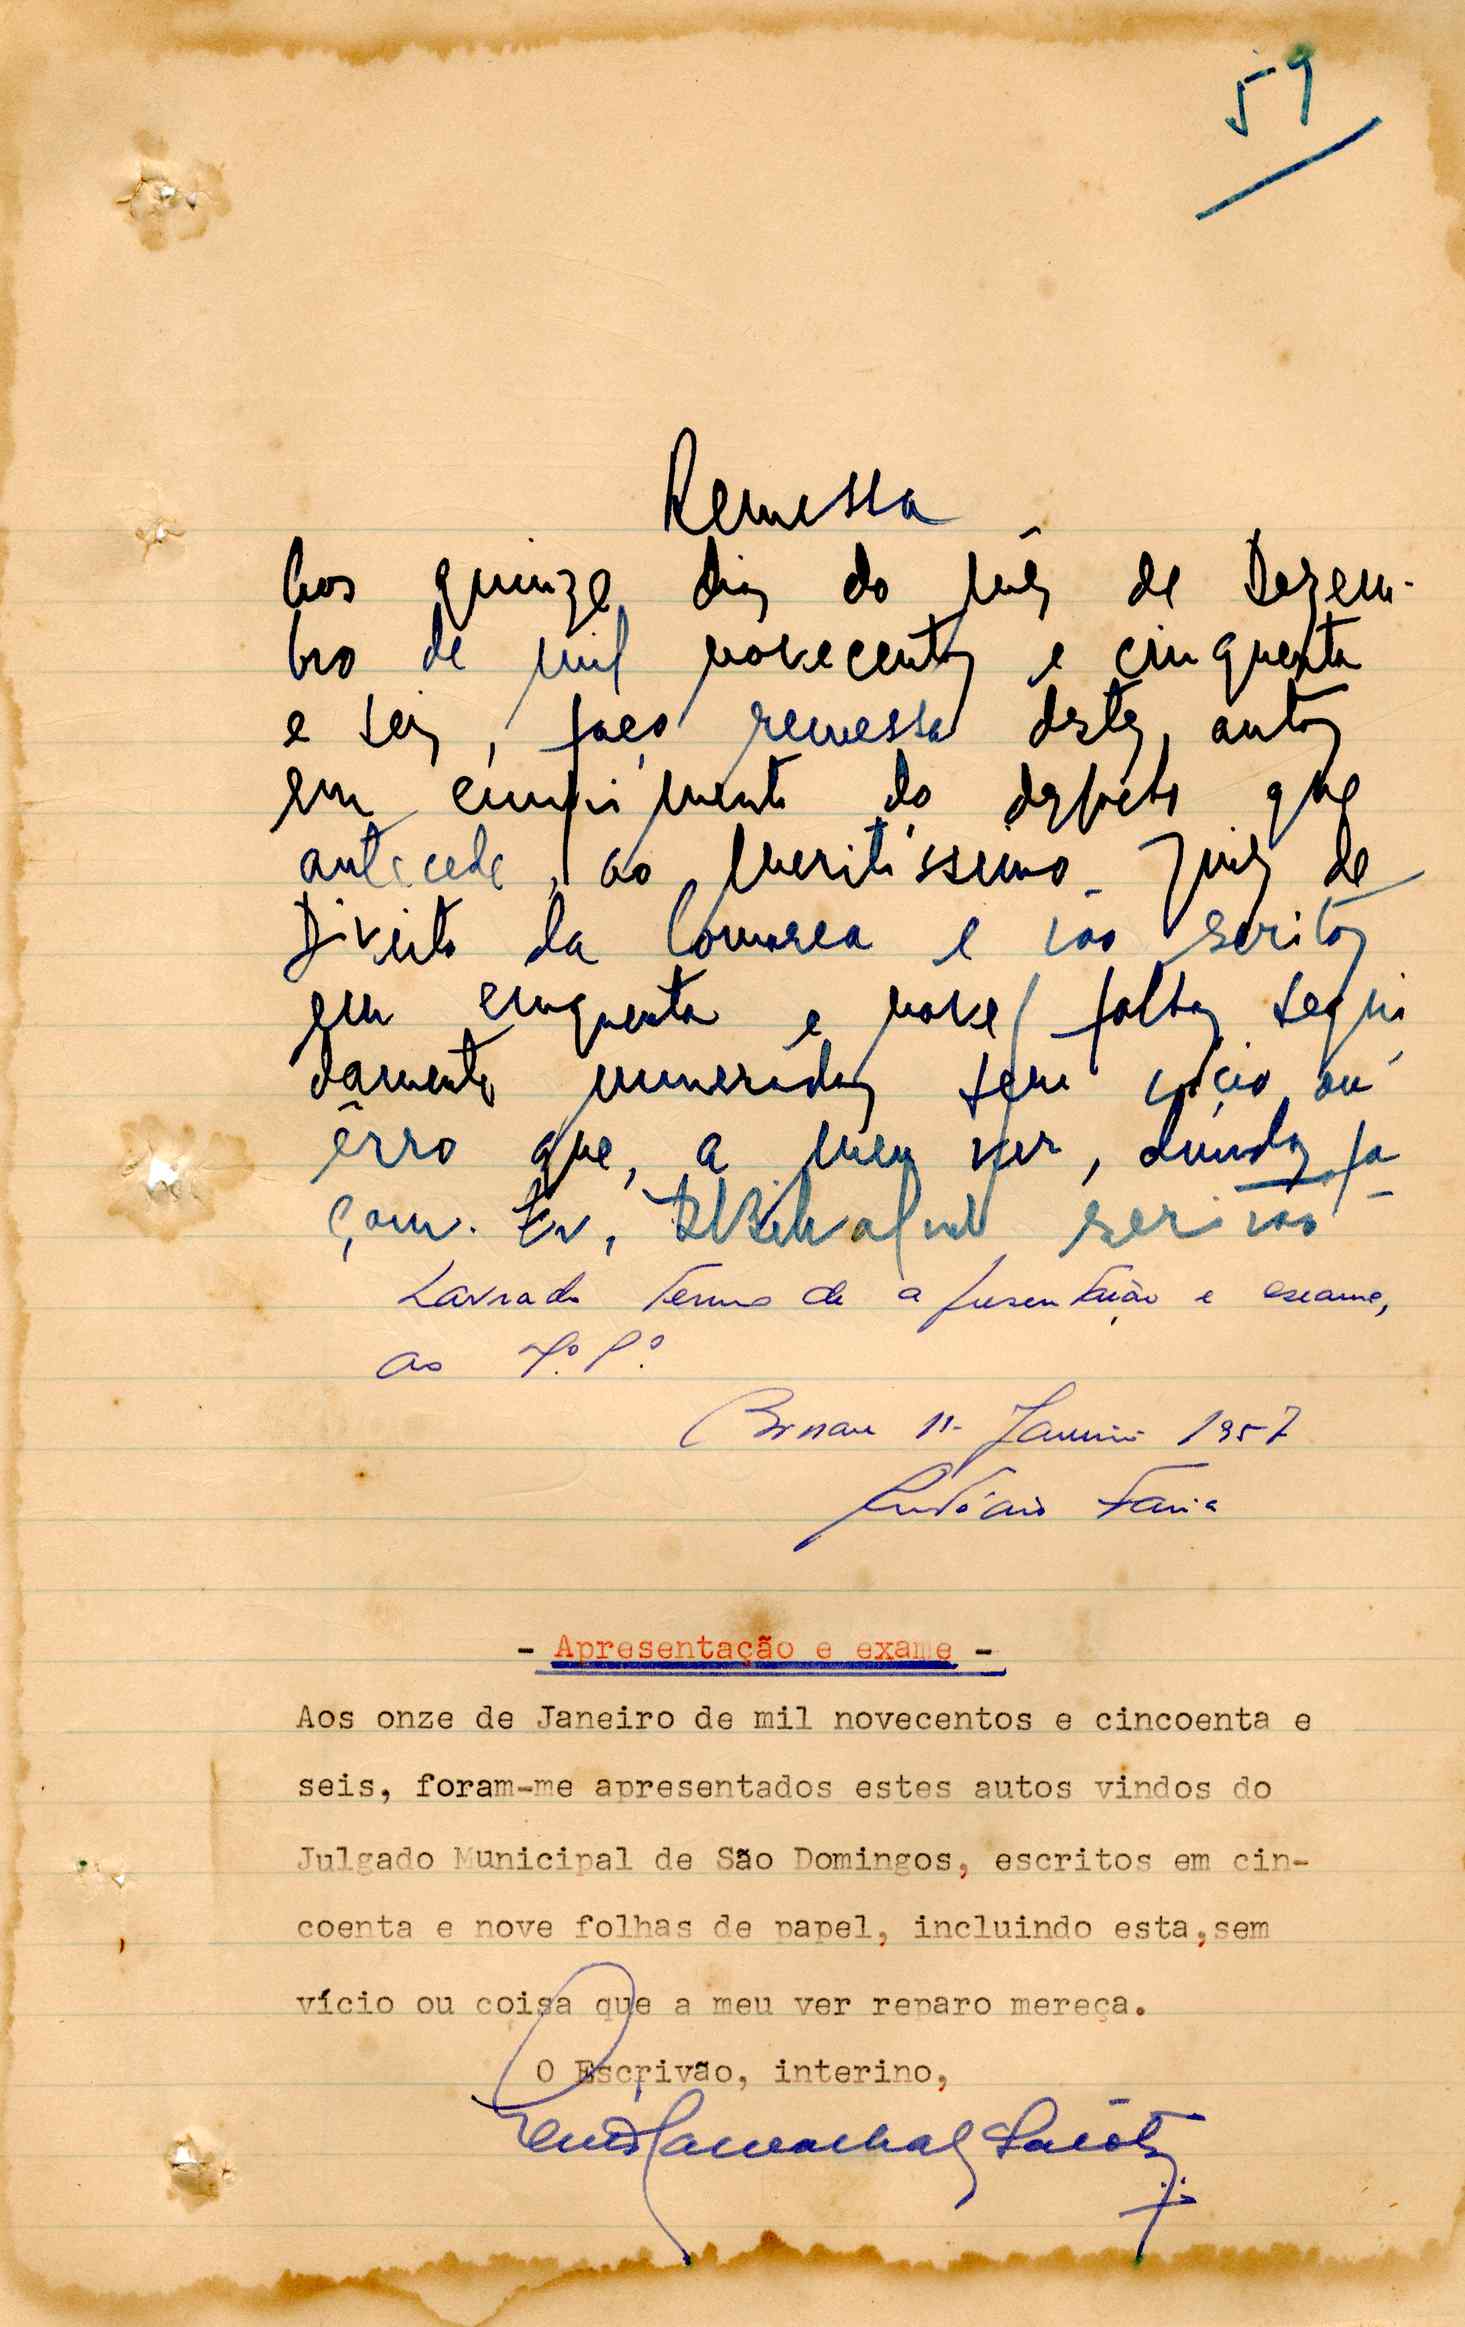 59
Remessa
Aos quinze dias do mês de Dezem-
bro de mil novecentos e cinquenta
e seis, faço remessa destes autos
em cumprimento do despacho que
antecede, ao Meritíssimo Juiz de
Direito da Comarca e vão escritos
em cinquenta e nove folhas segui
damente numeradas sem vício ou
êrro que, a meu ver, dúvidas fa
çam. Eu, escrivão
Lavrado termo de apresentação e exame,
ao
Bissau 11- Janeiro 1957
António Faria
- Apresentação e exame -
Aos onze de Janeiro de mil novecentos e cincoenta e
seis, foram-me apresentados estes autos vindos do
Julgado Municipal de São Domingos, escritos em cin-
coenta e nove folhas de papel, incluindo esta,sem
vício ou coisa que a meu ver reparo mereça.
O Escrivão, interino,